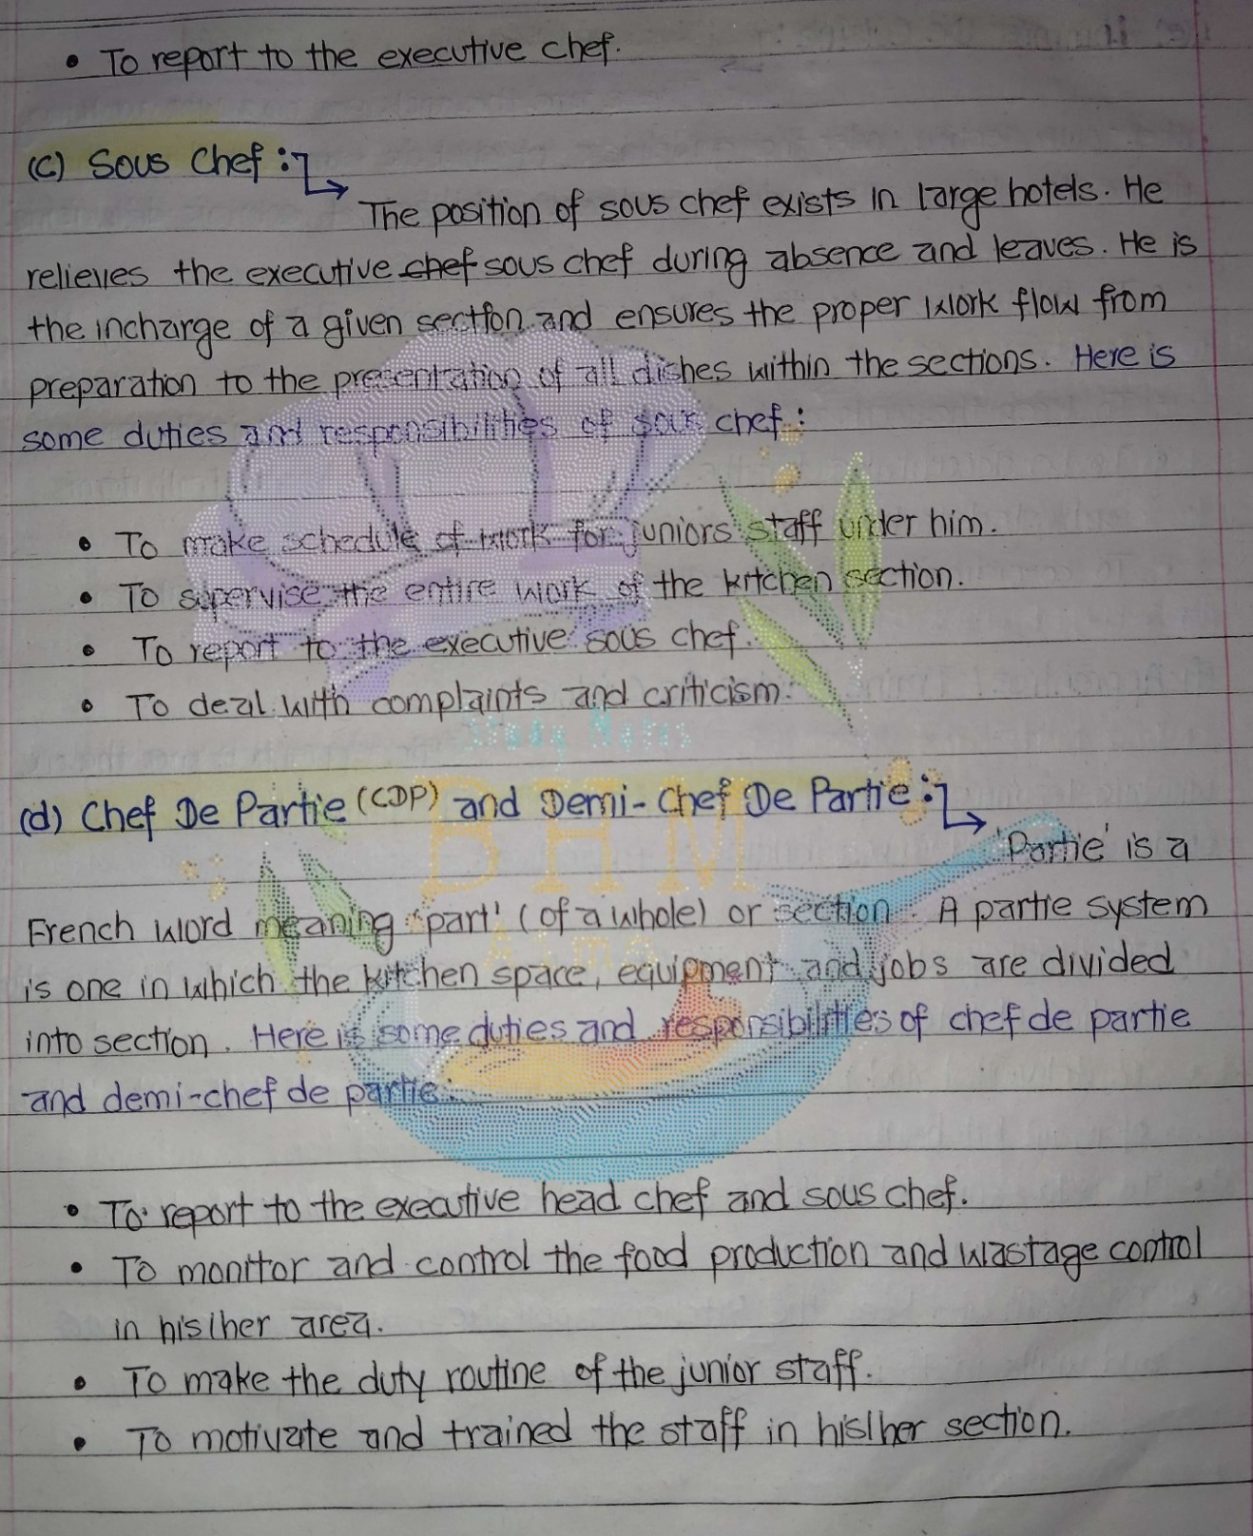 • To report to the executive chef.
(c) Sous Chef :↳
The position of sous chef exists in large hotels. He
relieves the executive chef sous chef during absence and leaves. He is
the incharge of a given section and ensures the proper work flow from
preparation to the presentation of all dishes within the sections. Here is
some duties and responsibilities of sous chef :
• To make schedule of work for juniors staff under him.
• To supervise the entire work of the kitchen section.
• To report to the executive sous chef.
• To deal with complaints and criticism.
Study Notes
(d) Chef De Partie (CDP) and Demi-Chef De Partie :↳
BHM
'Partie' is a
French word meaning 'part' (of a whole) or section. A partie system
is one in which the kitchen space, equipment and jobs are divided
into section. Here is some duties and responsibilities of chef de partie
and demi-chef de partie:
• To report to the executive head chef and sous chef.
• To monitor and control the food production and wastage control
in his/her area.
• To make the duty routine of the junior staff.
• To motivate and trained the staff in his/her section.